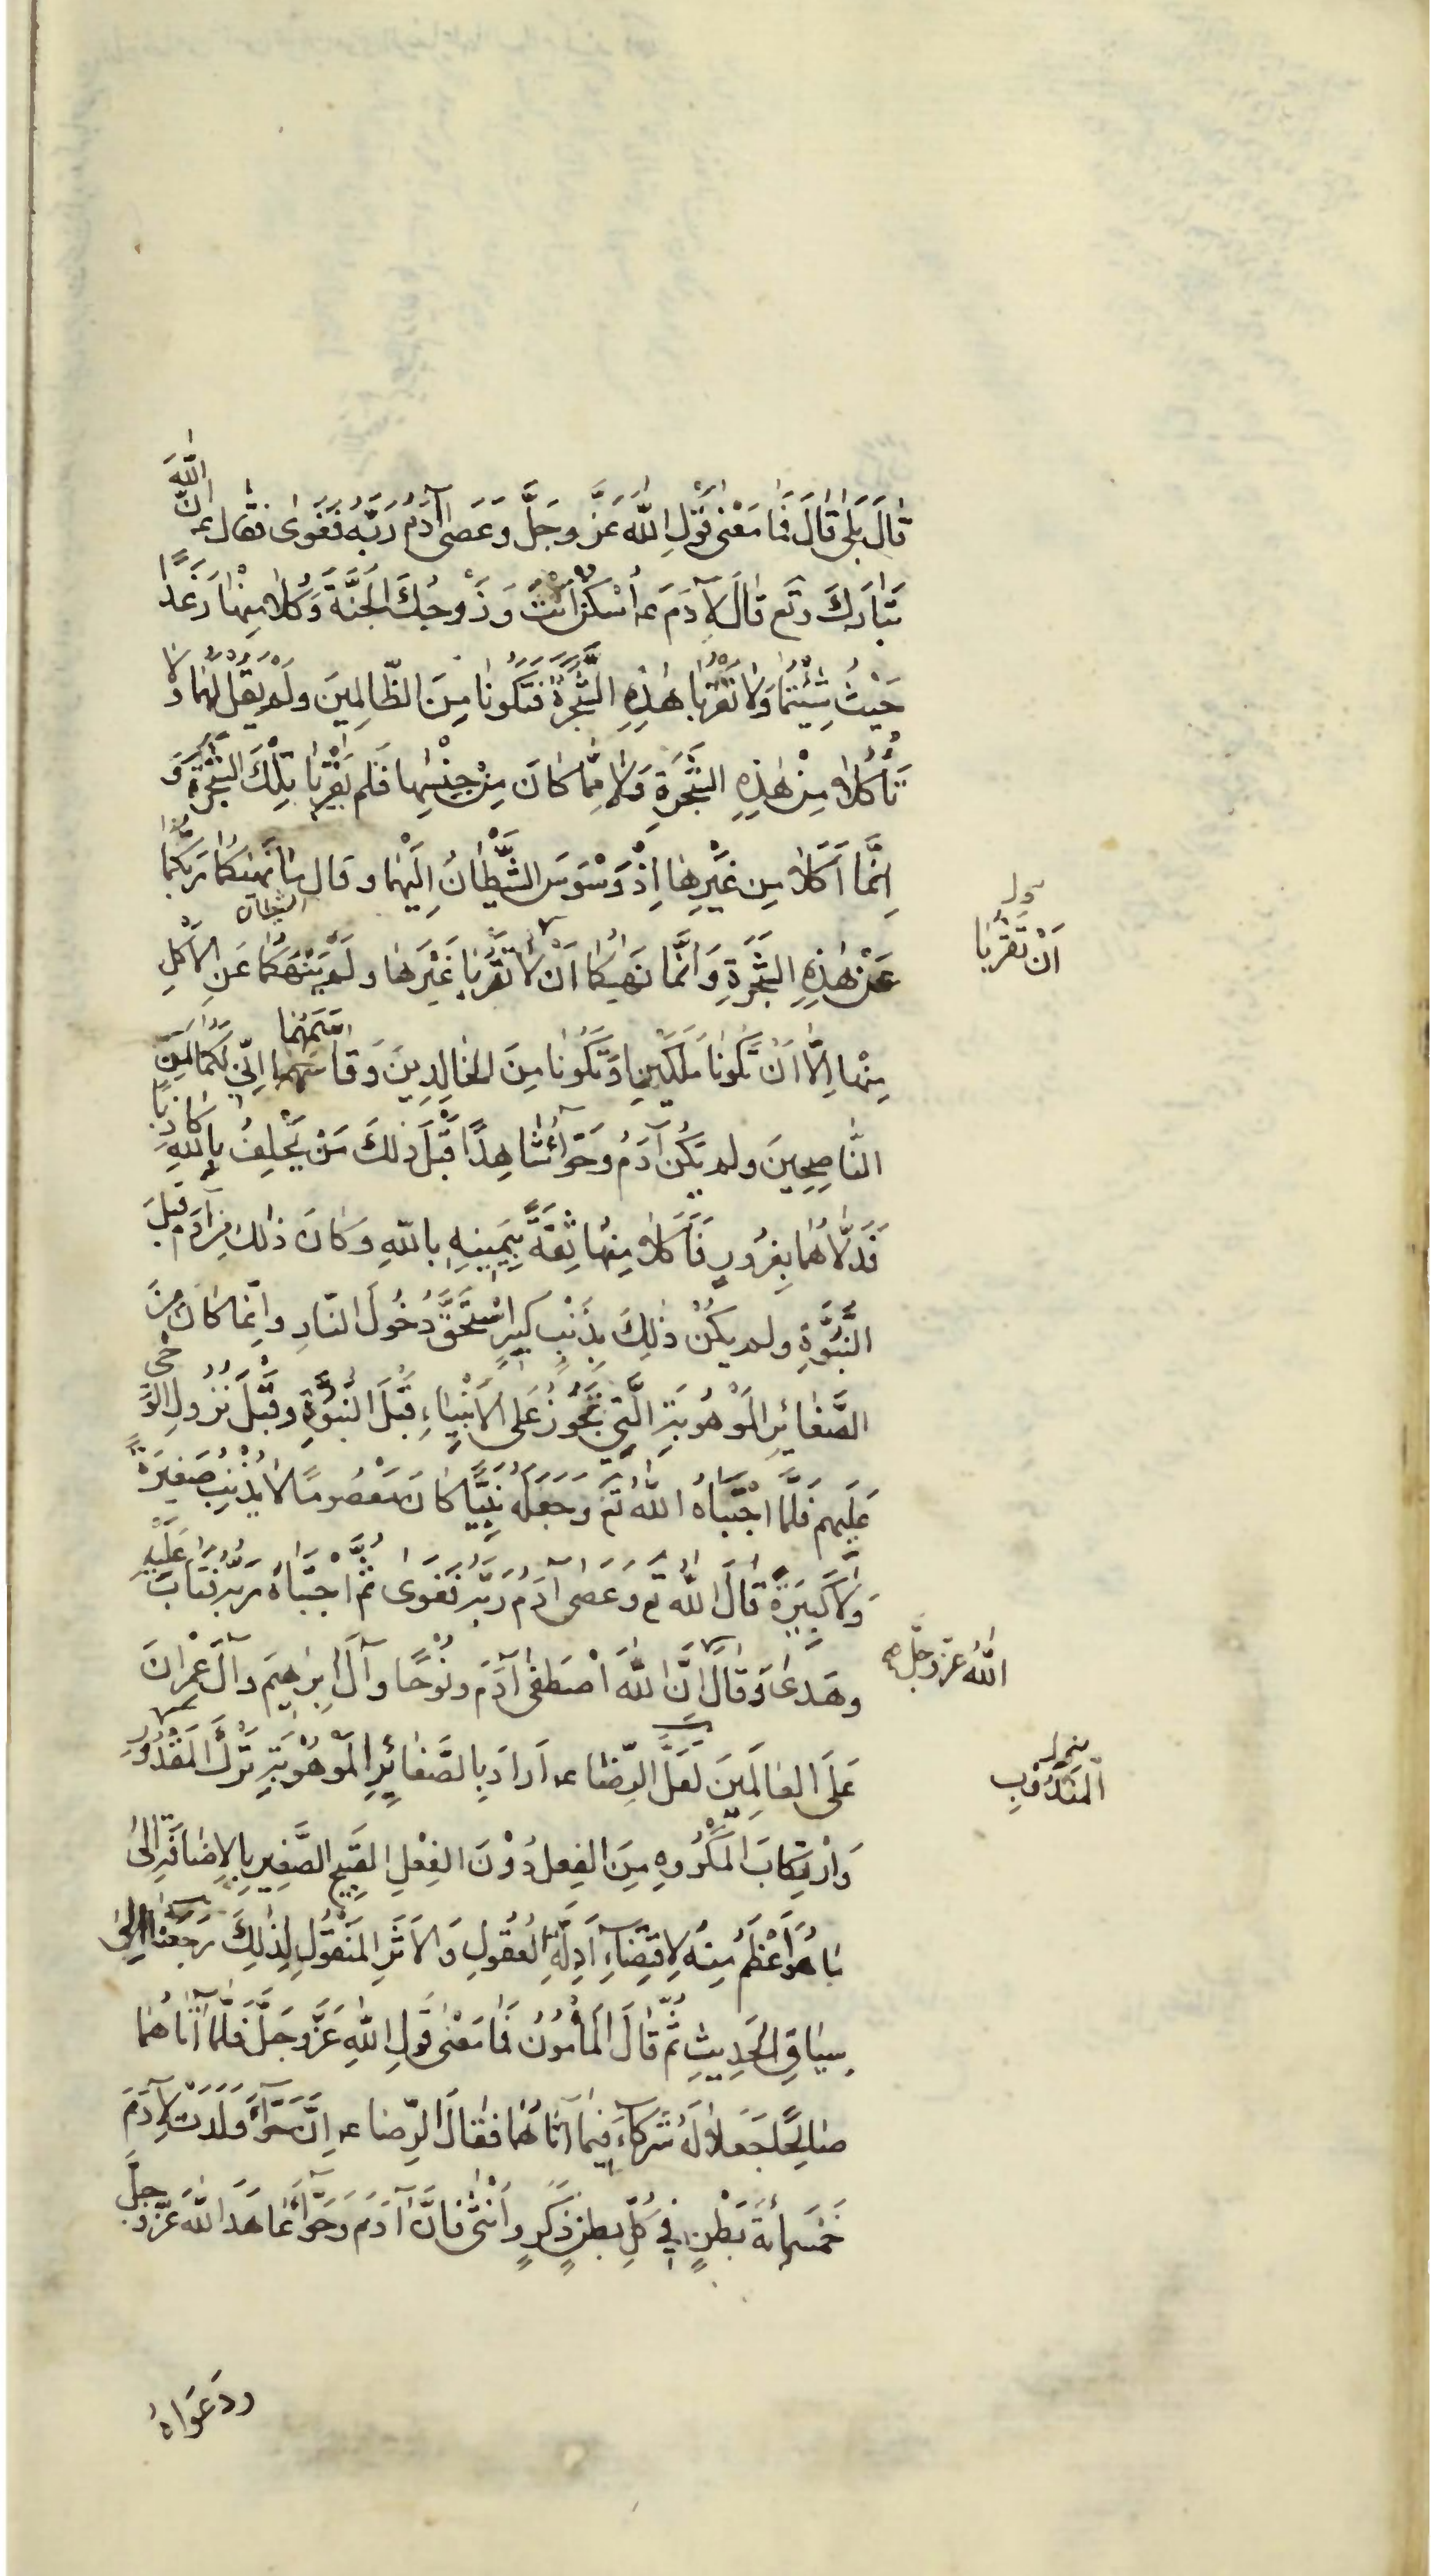 قَالَ بَلٰى قَالَ فَمَا مَعْنٰى قَوْلِ اللّٰهِ عَزَّ وَجَلَّ وَعَصٰى آدَمُ رَبَّهُ فَغَوٰى فقال عـ انَّ اللّٰهَ
تَبَارَكَ وتَع قَالَ لِآدَمَ عـ اُسْكُنْ اَنْتَ وَزَوْجُكَ الْجَنَّةَ وَكُلَا مِنْهَا رَغَدًا
حَيْثُ شِئْتُمَا وَلَا تَقْرَبَا هٰذِهِ الشَّجَرَةَ فَتَكُونَا مِنَ الظَّالِمِينَ وَلَمْ يَقُلْ لَهُمَا وَلَا
تَأْكُلَا مِنْ هٰذِهِ الشَّجَرَةِ وَلَا مِمَّا كَانَ مِنْ جِنْسِهَا فَلَم يَقْرَبَا تِلْكَ الشَّجَرَةَ وَ
اِنَّمَا اَكَلَا مِن غَيْرِهَا اِذْ وَسْوَسَ الشَّيْطَانُ اِلَيْهِمَا وقَالَ مَا نَهٰيكُمَا رَبُّكُمَا
الشيطان
عَنْ هٰذِهِ الشَّجَرَةِ وَاِنَّمَا نَهٰيكُمَا اَنْ لَا تَقْرَبَا غَيْرَهَا ولَمْ يَنْهَكُمَا عَنِ الْاَكْلِ
اَنْ تَقْرَبَا
مِنْهَا اِلَّا اَنْ تَكُونَا مَلَكَيْنِ وَتَكُونَا مِنَ الخَالِدِينَ وَقَاسَمَهُمَا اِنِّي لَكُمَا لَمِنَ
النَّاصِحِينَ ولم يَكُنْ آدَمُ وحَوَّآءُ شَاهِدًا قَبْلَ ذٰلِكَ مَنْ يَحْلِفُ بِاللّٰهِ كَاذِبًا
فَدَلَّاهُمَا بِغُرُورٍ فَاَكَلَا مِنْهَا ثِقَةً بِيَمِينِهِ بِاللّٰهِ وكَانَ ذٰلِكَ مِنْ آدَمَ قَبْلَ
النُّبُوَّةِ ولم يكُنْ ذٰلِكَ بِذَنْبٍ كبيرٍ اسْتَحَقَّ دُخُولَ النَّارِ واِنَّمَا كَانَ مِنَ
الصَّغَائِرِ المَوْهُوبَةِ الَّتِي تَجُوزُ عَلَى الْاَنْبِيَاءِ قَبْلَ النُّبُوَّةِ وقَبْلَ نُزُولِ الْوَحْيِ
عَلَيْهِم فَلَمَّا اجْتَبَاهُ اللّٰهُ تَعَ وجَعَلَهُ نَبِيًّا كَانَ مَعْصُومًا لَا يُذْنِبُ صَغِيرَةً
وَلَا كَبِيرَةً قَالَ اللّٰهُ تع وَعَصٰى آدَمُ رَبَّهُ فَغَوٰى ثُمَّ اجْتَبَاهُ رَبُّهُ فَتَابَ عَلَيْهِ
وهَدٰى وَقَالَ اِنَّ اللّٰهَ اصْطَفٰى آدَمَ ونُوحًا وآلَ اِبرٰهِيمَ وآلَ عِمْرَانَ
اللّٰهُ عَزَّ وجَلَّ
عَلَى العَالَمِينَ لَعَلَّ الرِّضَا عـ اَرَادَ بِالصَّغَائِرِ المَوْهُوبَةِ تَرْكَ المَقْدُورِ
الْمَنْدُوبِ
وَارْتِكَابَ المَكْرُوهِ مِنَ الفِعلِ دُوْنَ الفِعْلِ القَبِيحِ الصَّغِيرِ بِالْاِضَافَةِ اِلٰى
مَا هُوَ اَعْظَمُ مِنْهُ لِاقْتِضَآءِ اَدِلَّةِ الْعُقُولِ وَالْاَثَرِ المَنْقُولِ لِذٰلِكَ رَجَعْنَا اِلٰى
سِيَاقِ الحَدِيثِ ثُمَّ قَالَ الْمَأمُونُ فَمَا مَعْنٰى قَوْلِ اللّٰهِ عَزَّ وجَلَّ فَلَمَّا آتَاهُمَا
صَالِحًا جَعَلَا لَهُ شُرَكَآءَ فِيمَا آتَاهُمَا فقَالَ الرِّضا عـ اِنَّ حَوَّآءَ وَلَدَتْ لِآدَمَ
خَمْسَمِائَةَ بَطْنٍ فِي كُلِّ بطنٍ ذَكَرٍ وَاُنْثٰى فَاِنَّ آدَمَ وَحَوَّآءَ عَاهَدَا اللّٰهَ عَزَّ وجَلَّ
ودَعَوَاهُ